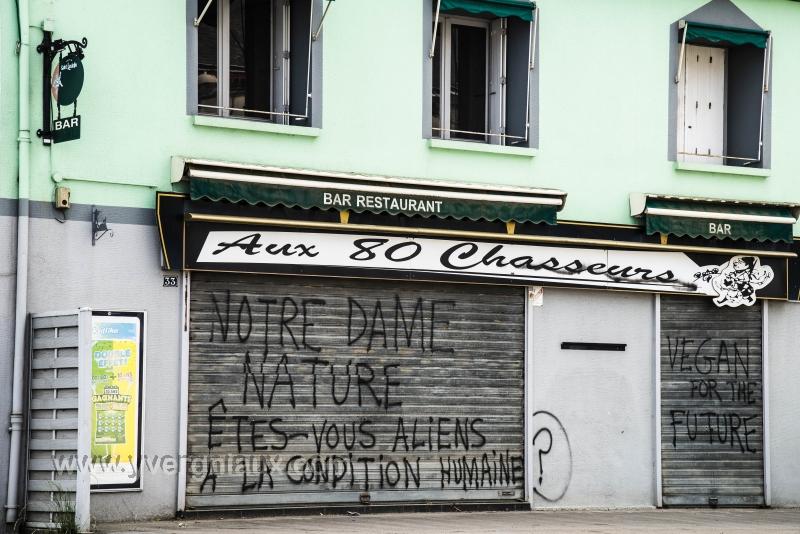 BAR
BAR RESTAURANT
BAR
Aux 80 Chasseurs
33
NOTRE DAME
NATURE
ÊTES-VOUS ALIENS
À LA CONDITION HUMAINE ?
VEGAN
FOR THE
FUTURE
DOUBLE
GAGNANTS